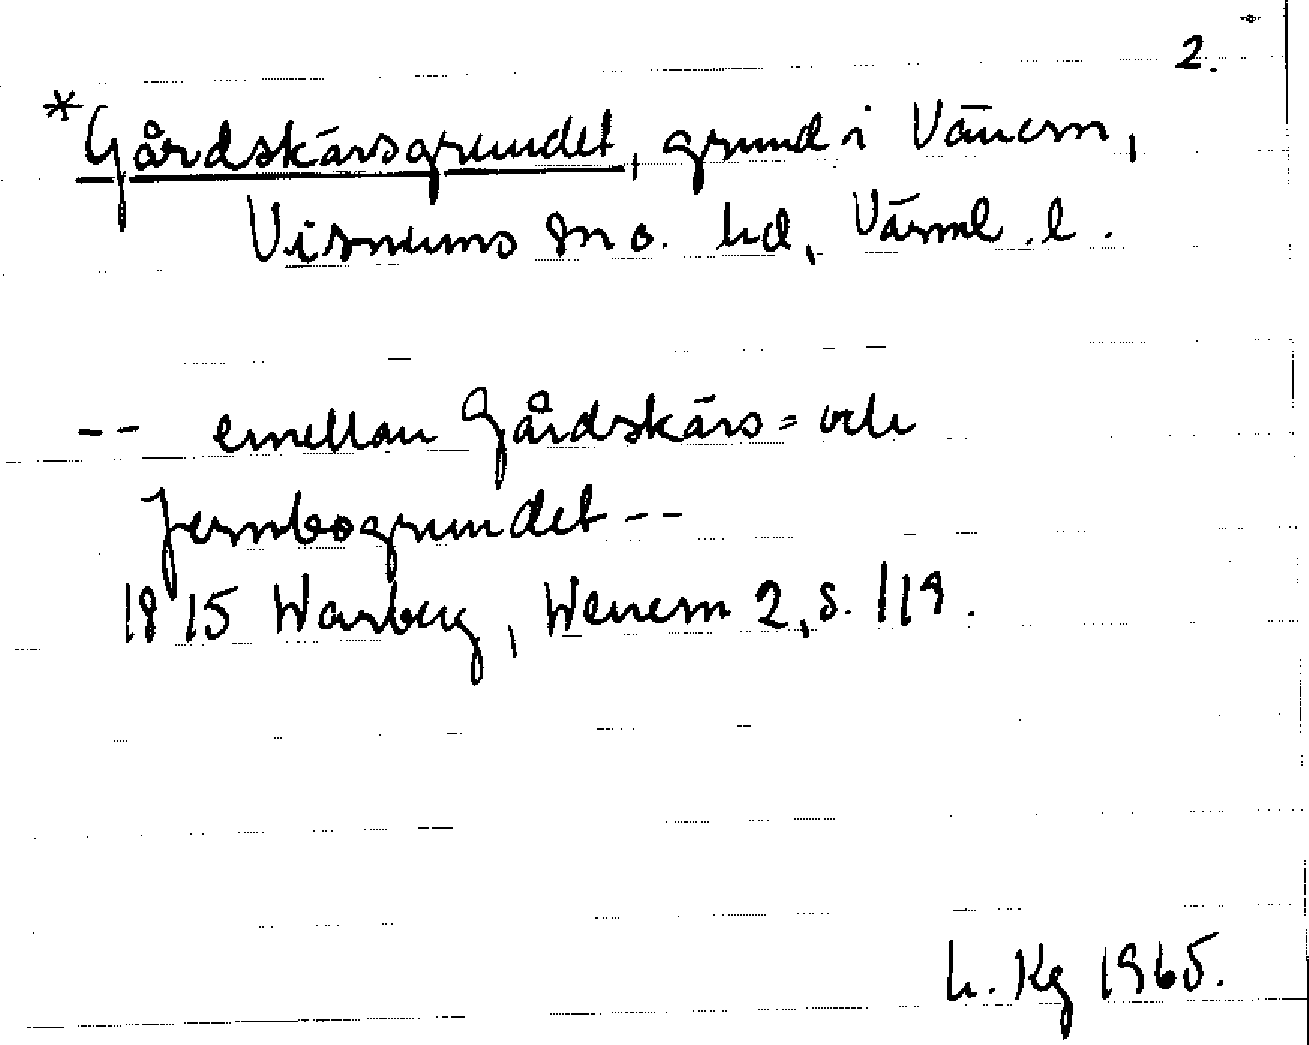 2.
*Gårdskärsgrundet, grund i Vänern,
Visnums sn o. hd, Värml. l.
-- emellan Gårdskärs= och
Jernbogrundet --
1815 Warberg, Wenern 2, s. 119.
L. Kg 1965.